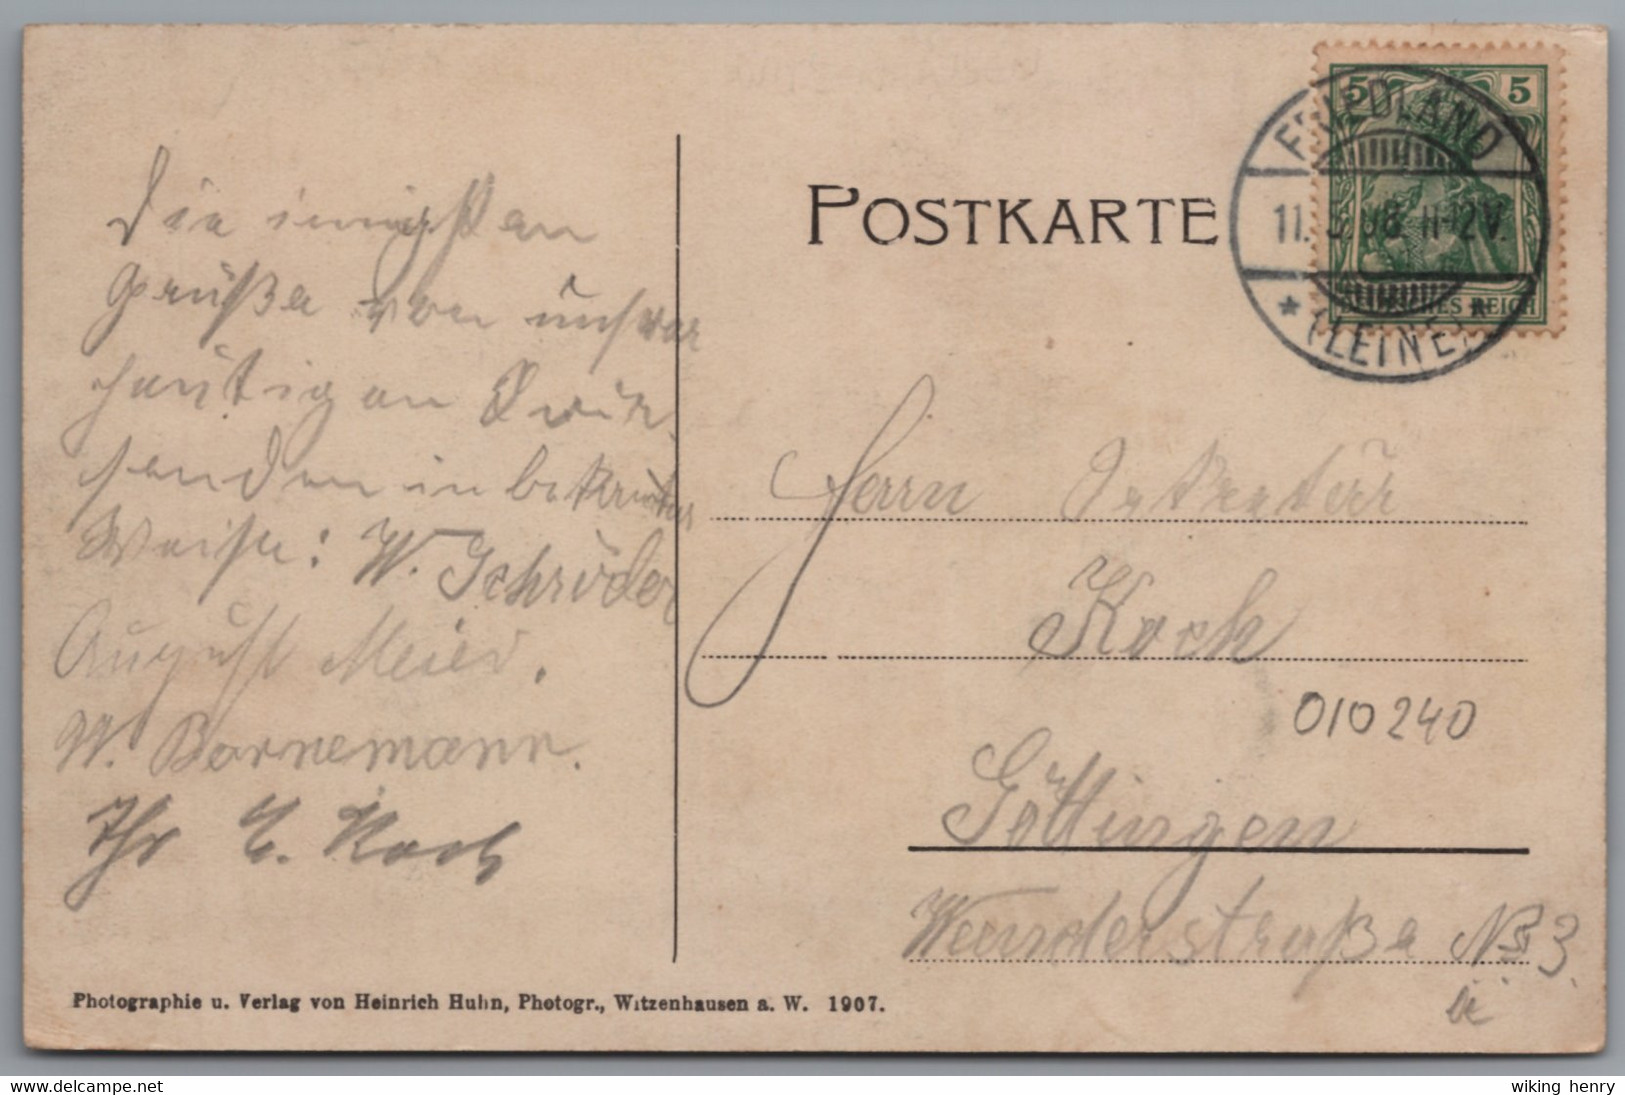 Die innigsten
Grüße von unserer
heutigen
senden in bekannter
Weise: W. Schröder
August Meier.
W. Bornemann.
Ihr E. Koch
Photographie u. Verlag von Heinrich Huhn, Photogr., Witzenhausen a. W. 1907.
POSTKARTE
5 5
DEUTSCHES REICH
FRIEDLAND
11. 08 11-12V.
* (LEINE) *
Herrn Sekretär
Koch
010240
Göttingen
Weenderstraße No 3.
www.delcampe.net
wiking henry